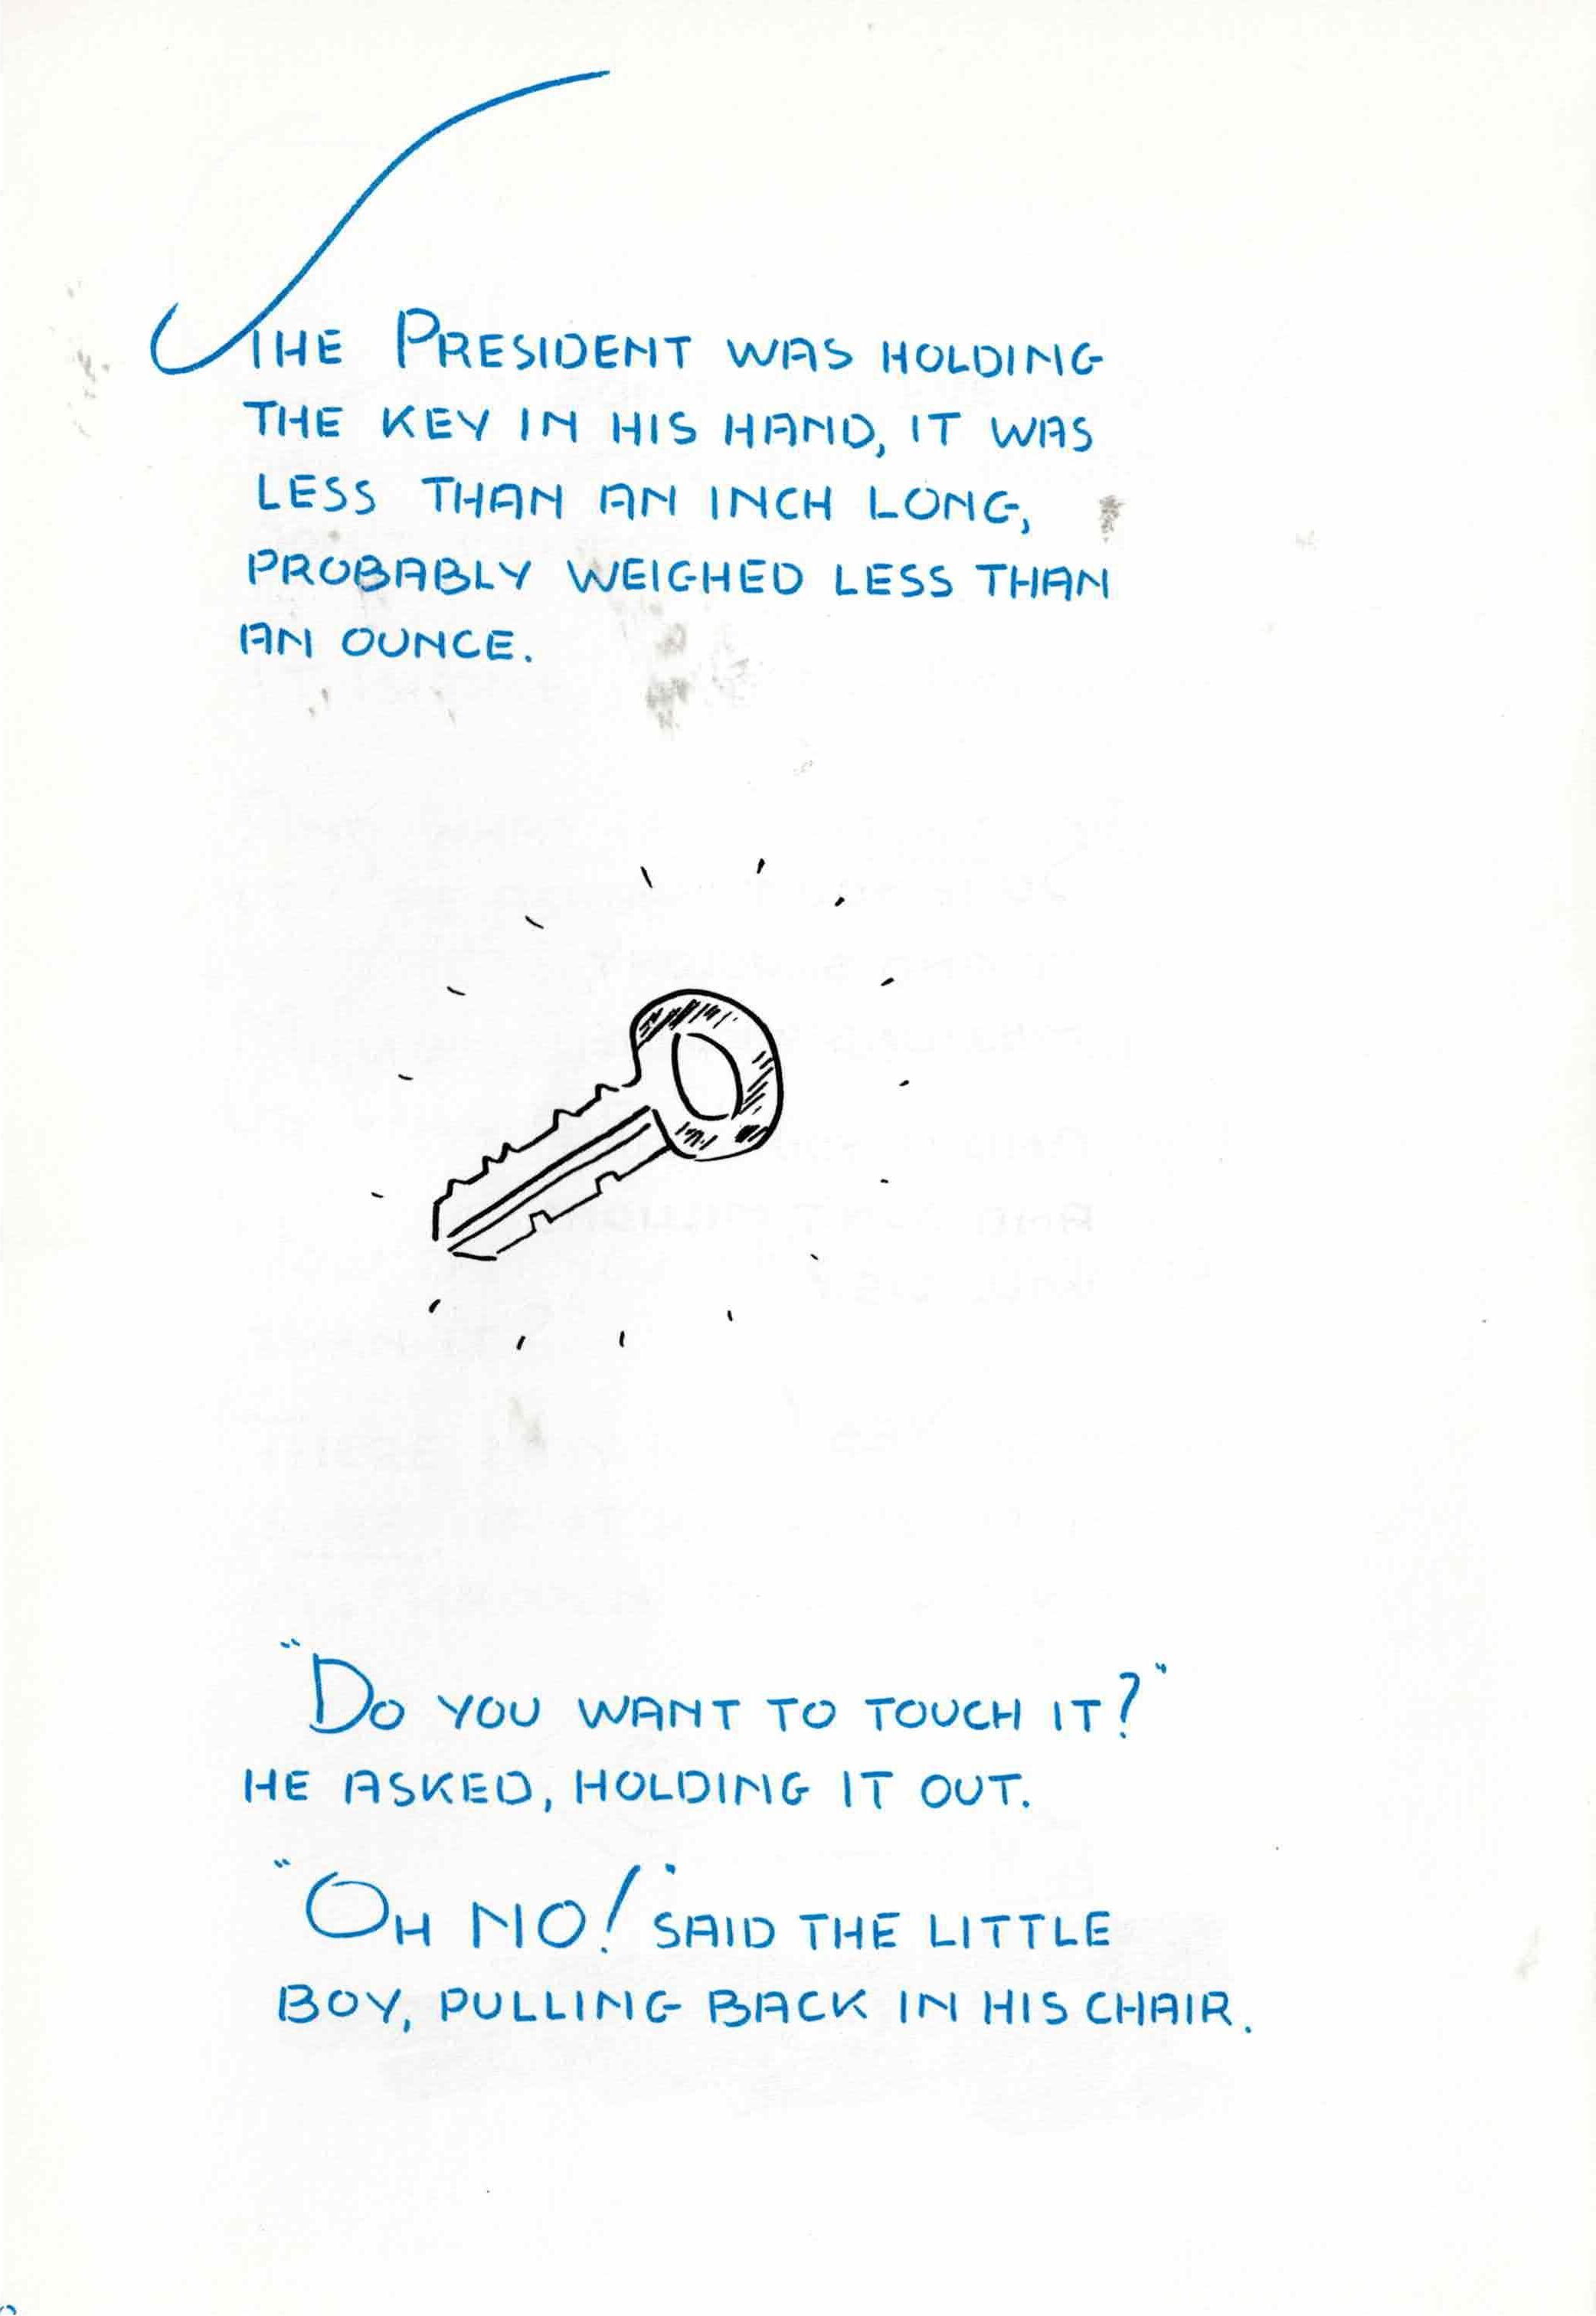 THE PRESIDENT WAS HOLDING
THE KEY IN HIS HAND, IT WAS
LESS THAN AN INCH LONG,
PROBABLY WEIGHED LESS THAN
AN OUNCE.
"DO YOU WANT TO TOUCH IT?"
HE ASKED, HOLDING IT OUT.
"OH NO!" SAID THE LITTLE
BOY, PULLING BACK IN HIS CHAIR.